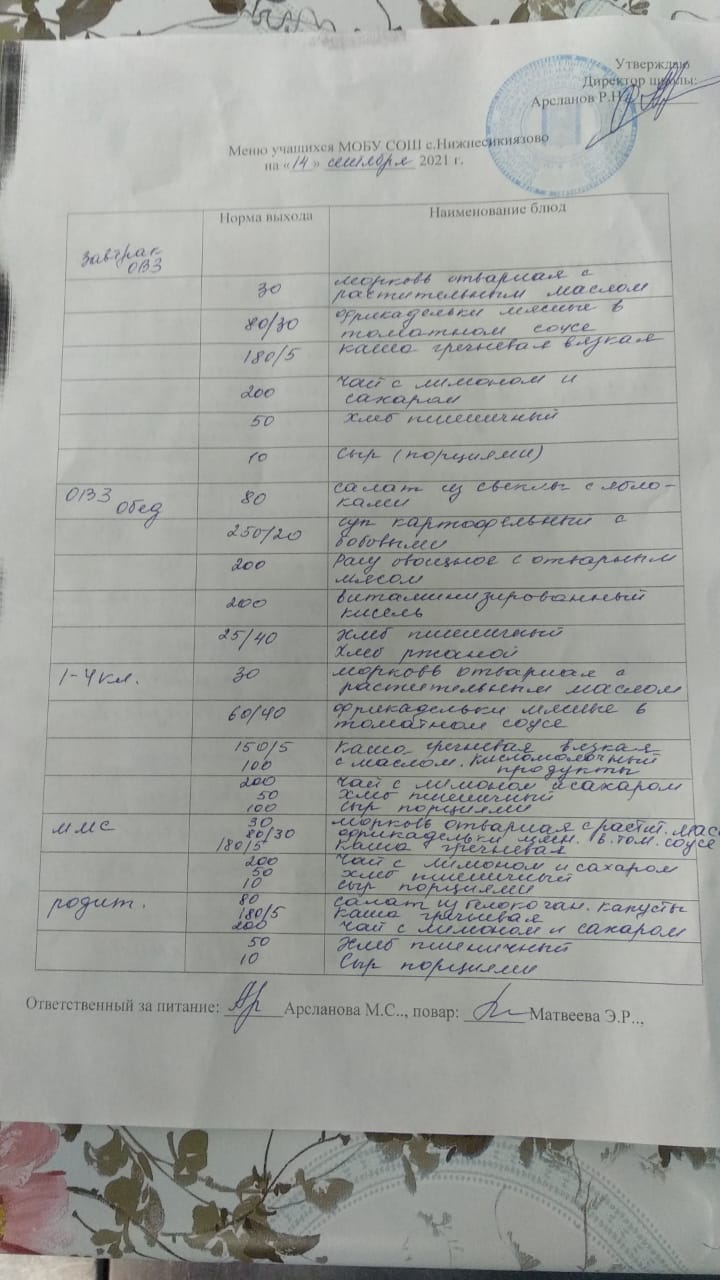 Утверждаю
Директор школы:
Арсланов Р.Н.
Меню учащихся МОБУ СОШ с.Нижнесикиязово
на «14» сентября 2021 г.
Норма выхода Наименование блюд
Завтрак
ОВЗ
30 морковь отварная с
растительным маслом
80/30 фрикадельки мясные в
томатном соусе
180/5 каша гречневая вязкая
200 Чай с лимоном и
сахаром
50 хлеб пшеничный
10 Сыр (порциями)
ОВЗ
Обед
80 салат из свеклы с ябло-
ками
250/20 суп картофельный с
бобовыми
200 Рагу овощное с отварным
мясом
200 витаминизированный
кисель
25/40 хлеб пшеничный
хлеб ржаной
1-4 кл. 30 морковь отварная с
растительным маслом
60/40 фрикадельки мясные в
томатном соусе
150/5 каша гречневая вязкая
100 с маслом. кисломолочный
продукты
200 Чай с лимоном и сахаром
50 хлеб пшеничный
100 Сыр порциями
ммс 30 морковь отварная с растит. мас
80/30 фрикадельки мясн. в том. соусе
180/5 каша гречневая
200 Чай с лимоном и сахаром
50 хлеб пшеничный
10 сыр порциями
родит. 80 салат из белокочан. капусты
180/5 каша гречневая
200 Чай с лимоном и сахаром
50 хлеб пшеничный
10 Сыр порциями
Ответственный за питание: ______Арсланова М.С.., повар: ______Матвеева Э.Р..,